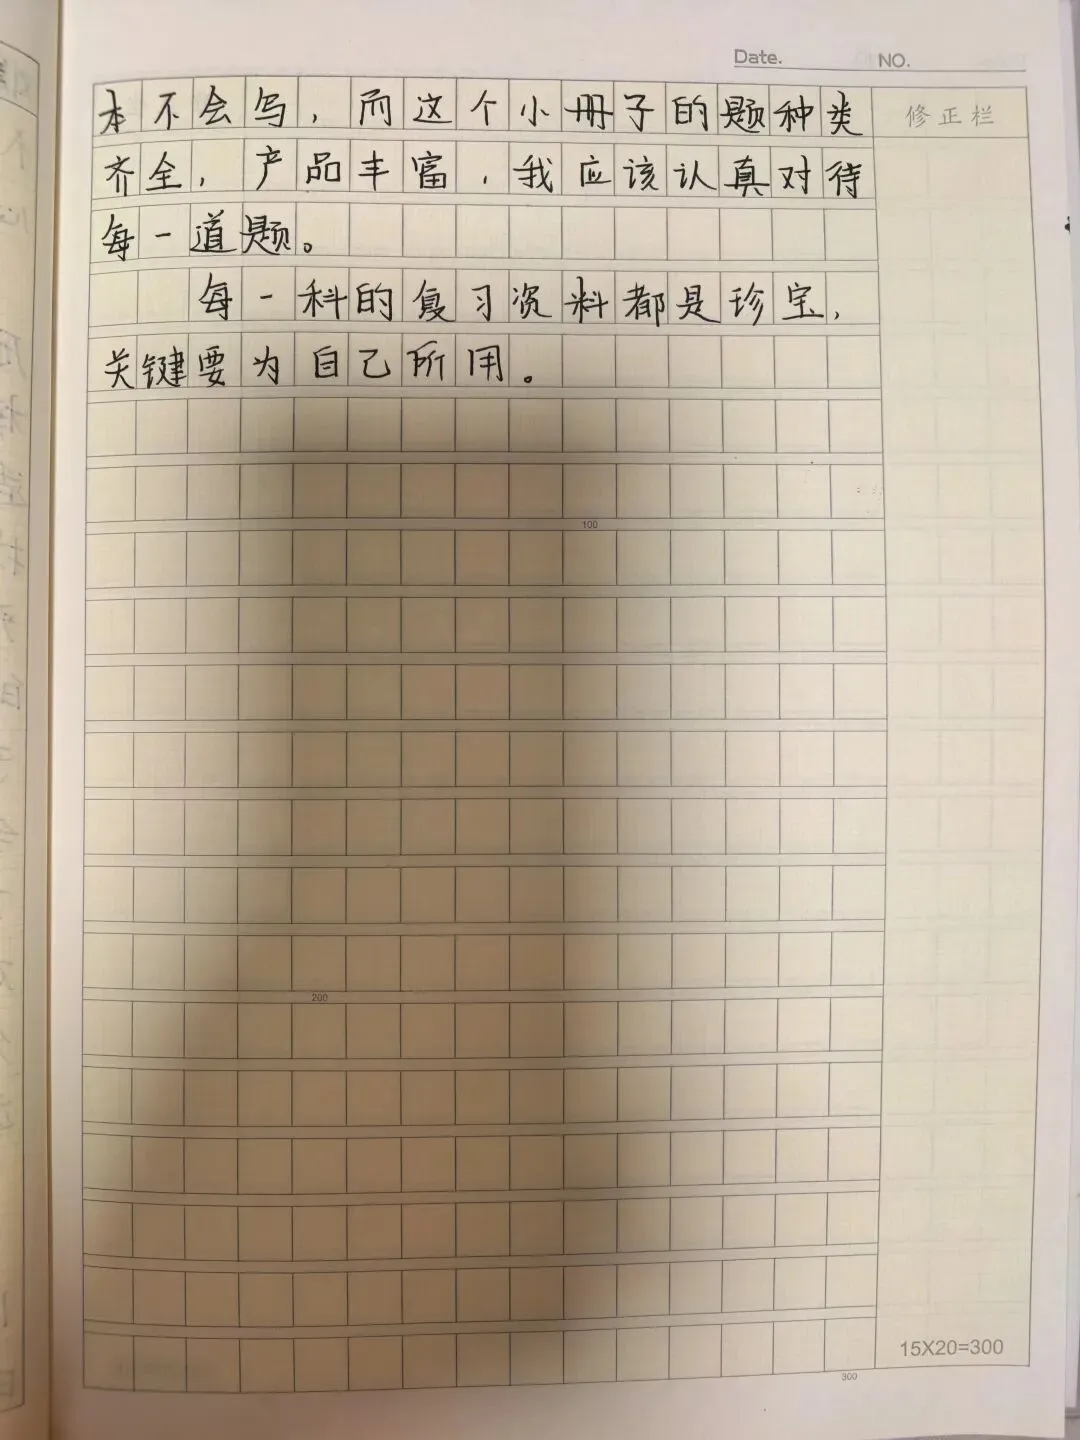 Date. NO.
本不会写，而这个小册子的题种类
修正栏
齐全，产品丰富，我应该认真对待
每一道题。
每一科的复习资料都是珍宝，
关键要为自己所用。
100
200
15X20=300
300